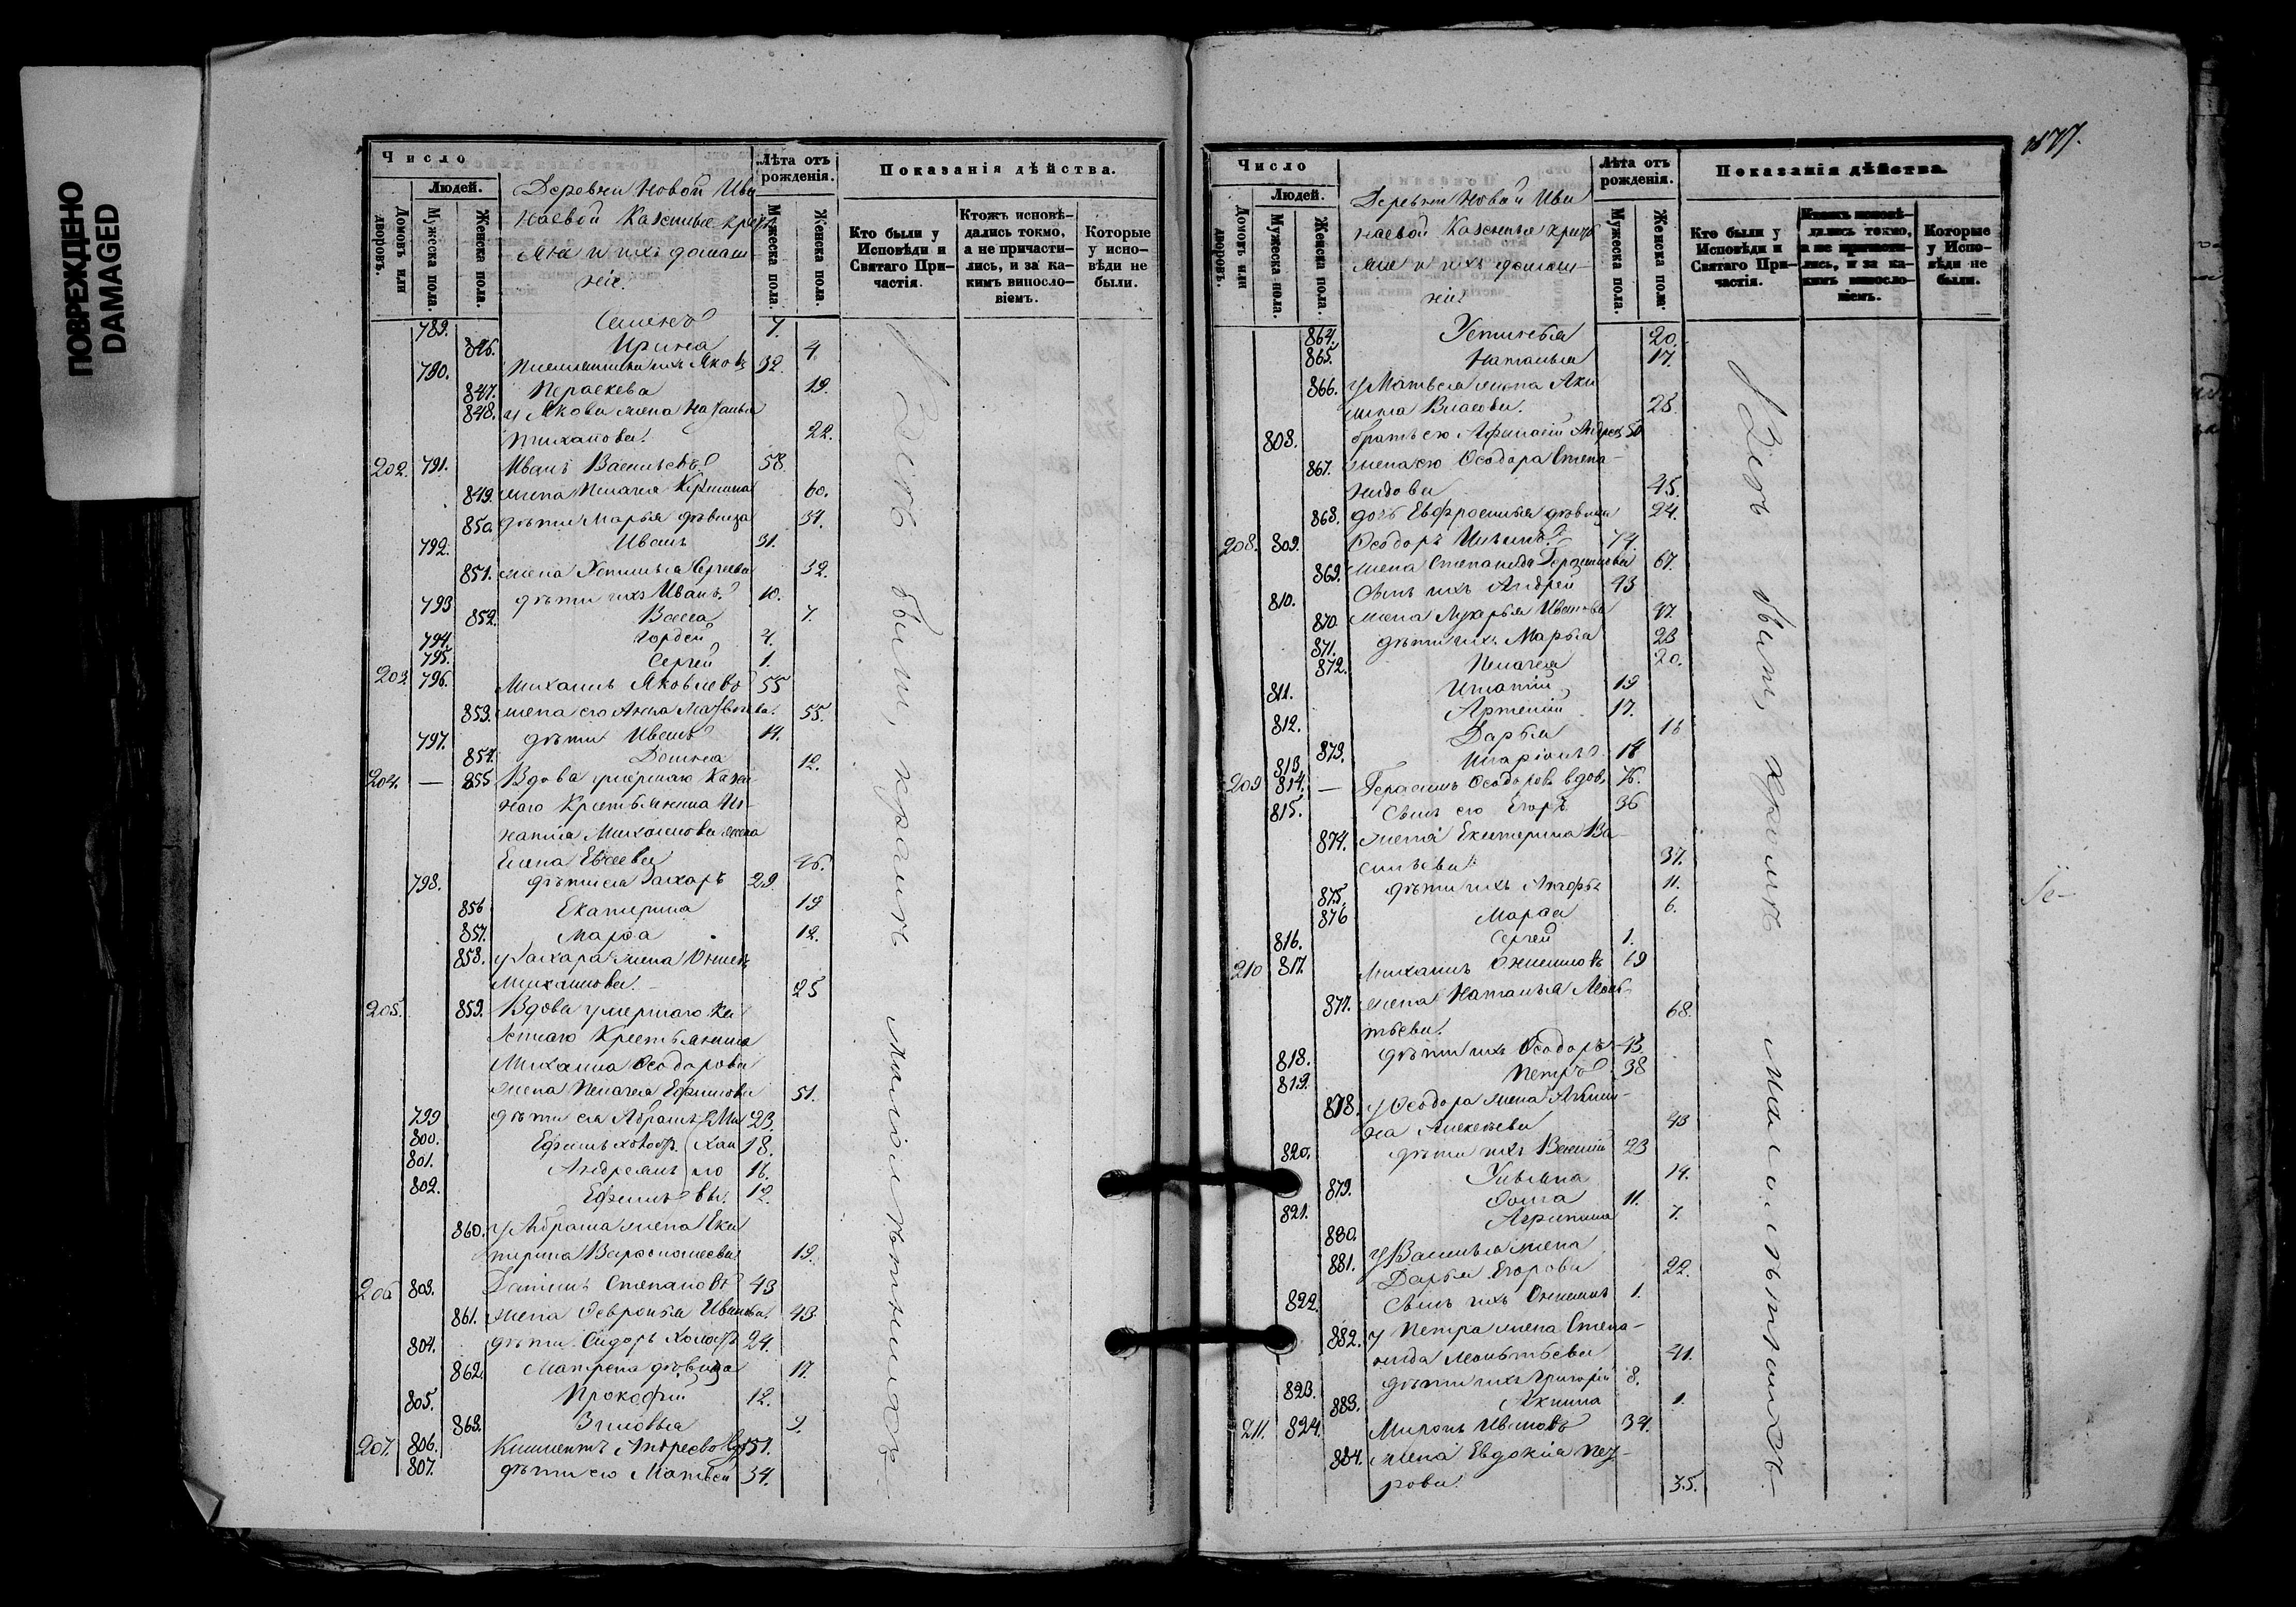 ПОВРЕЖДЕНО
DAMAGED
Число
Людей.
Домовъ или дворовъ.
Мужеска пола.
Женска пола.
Деревни Новой Ива
наевой Казенные крест
яне и ихъ домаш-
ніе.
Лѣта отъ рожденія.
Мужеска пола.
Женска пола.
Показанія дѣйства.
Кто были у Исповѣди и Святаго При-частія.
Ктожъ исповѣ-дались токмо, а не причасти-лись, и за ка-кимъ винослo-віемъ.
Которые у испо-вѣди не были.
789. Семенъ 7.
846. Ирина 4
790. племянники ихъ Яковъ 32.
847. Параскева 19.
848. у Якова жена Наталья
22.
202. 791. Иванъ Васильевъ 58.
849. жена Пелагея 60.
850. дѣти Марья дѣвица 34.
792. Иванъ 31.
851. жена Устинья Сергеева 32.
793 дѣти ихъ Иванъ 10.
852. Васса 7.
794. Гордей 4.
795. Сергей 1.
203. 796. Михаилъ Яковлевъ 55
853. жена его Анна Матвѣева. 55.
797. дѣти Иванъ 14.
854. Домна 12.
204. — 855 Вдова умершаго Казен
наго Крестьянина Иг-
натія Михайлова жена
Елена Евсеева 46.
798. дѣти ея Захаръ 29.
856 Екатерина 19
857. Марѳа 12.
858. у Захара жена
Михайлова. 25
205. 859. Вдова умершаго Ка
зеннаго Крестьянина
Михаила Ѳеодорова
жена Пелагея Ефимова 51.
799 дѣти ея Абрамъ Ми 23.
800. Ефимъ холост. хай 18.
801. Андреянъ ло 16.
802. Ефимъ вы. 12.
860. у Абрама жена Ека
терина Варфоломеева 19.
206 803. Данилъ Степановъ 43
861. жена Ѳевронья Иванова. 43.
804. дѣти Сидоръ холост 24.
862. Матрена дѣвица 17.
805. Прокофій 12.
863. Зиновья 9.
207. 806. Климентъ Андреевъ вд 57.
807. дѣти его Матвей 34.
Всѣ были, кромѣ малолѣтнихъ.
177.
Число
Людей.
Домовъ или дворовъ.
Мужеска пола.
Женска пола.
Деревни Новой Ива
наевой Казенные крест
яне и ихъ домаш-
ніе
Лѣта отъ рожденія.
Мужеска пола.
Женска пола.
Показанія дѣйства.
Кто были у Исповѣди и Святаго При-частія.
Ктожъ исповѣ-дались токмо, а не причасти-лись, и за ка-кимъ винослo-віемъ.
Которые у Испо-вѣди не были.
864. Устинья 20.
865. Наталья 17.
866. у Матвея жена Аки
лина Власова. 25.
808. братъ его Афанасій Андреев 50
867. жена его Ѳеодора Спепа-
нидова 45.
868. дочь Евфросинья дѣвица 24.
208. 809. Ѳеодоръ Ильинъ 74.
869. жена Степанида Герасимова 67.
810. Сынъ ихъ Андрей 43
870. жена Лукерья Иванова 47.
871. дѣти ихъ Марья 23
872. Пелагея 20.
811. Игнатій 19
812. Артемій 17.
873. Дарья 16
813. Иларіонъ 14
209 814. — Герасимъ Ѳеодоровъ вдов. 76.
815. Сынъ его Егоръ 36
874. жена Екатерина Ва-
сильева 37.
875. дѣти ихъ Агафья 11.
876 Марѳа 6.
816. Сергей 1.
210 817. Михаилъ 69
877. жена Наталья Леон-
тьева. 68.
818. дѣти ихъ Ѳеодоръ 45
819. Петръ 38
878. у Ѳеодора жена
на Алексѣева 43
820. дѣти ихъ Василій 23
879. Ульяна 14.
821. Ѳома 11.
880. Агрипина 7.
881. у Василья жена
Дарья Егорова 22.
822. Сынъ ихъ 1.
882. у Петра жена Степа-
нида Леонтьева 41.
823. дѣти ихъ Григорій 8.
883. Акилина 1.
211. 824. Миронъ Ивановъ 34.
884. жена Евдокія Пет-
рова. 35.
Всѣ были, кромѣ малолѣтнихъ.